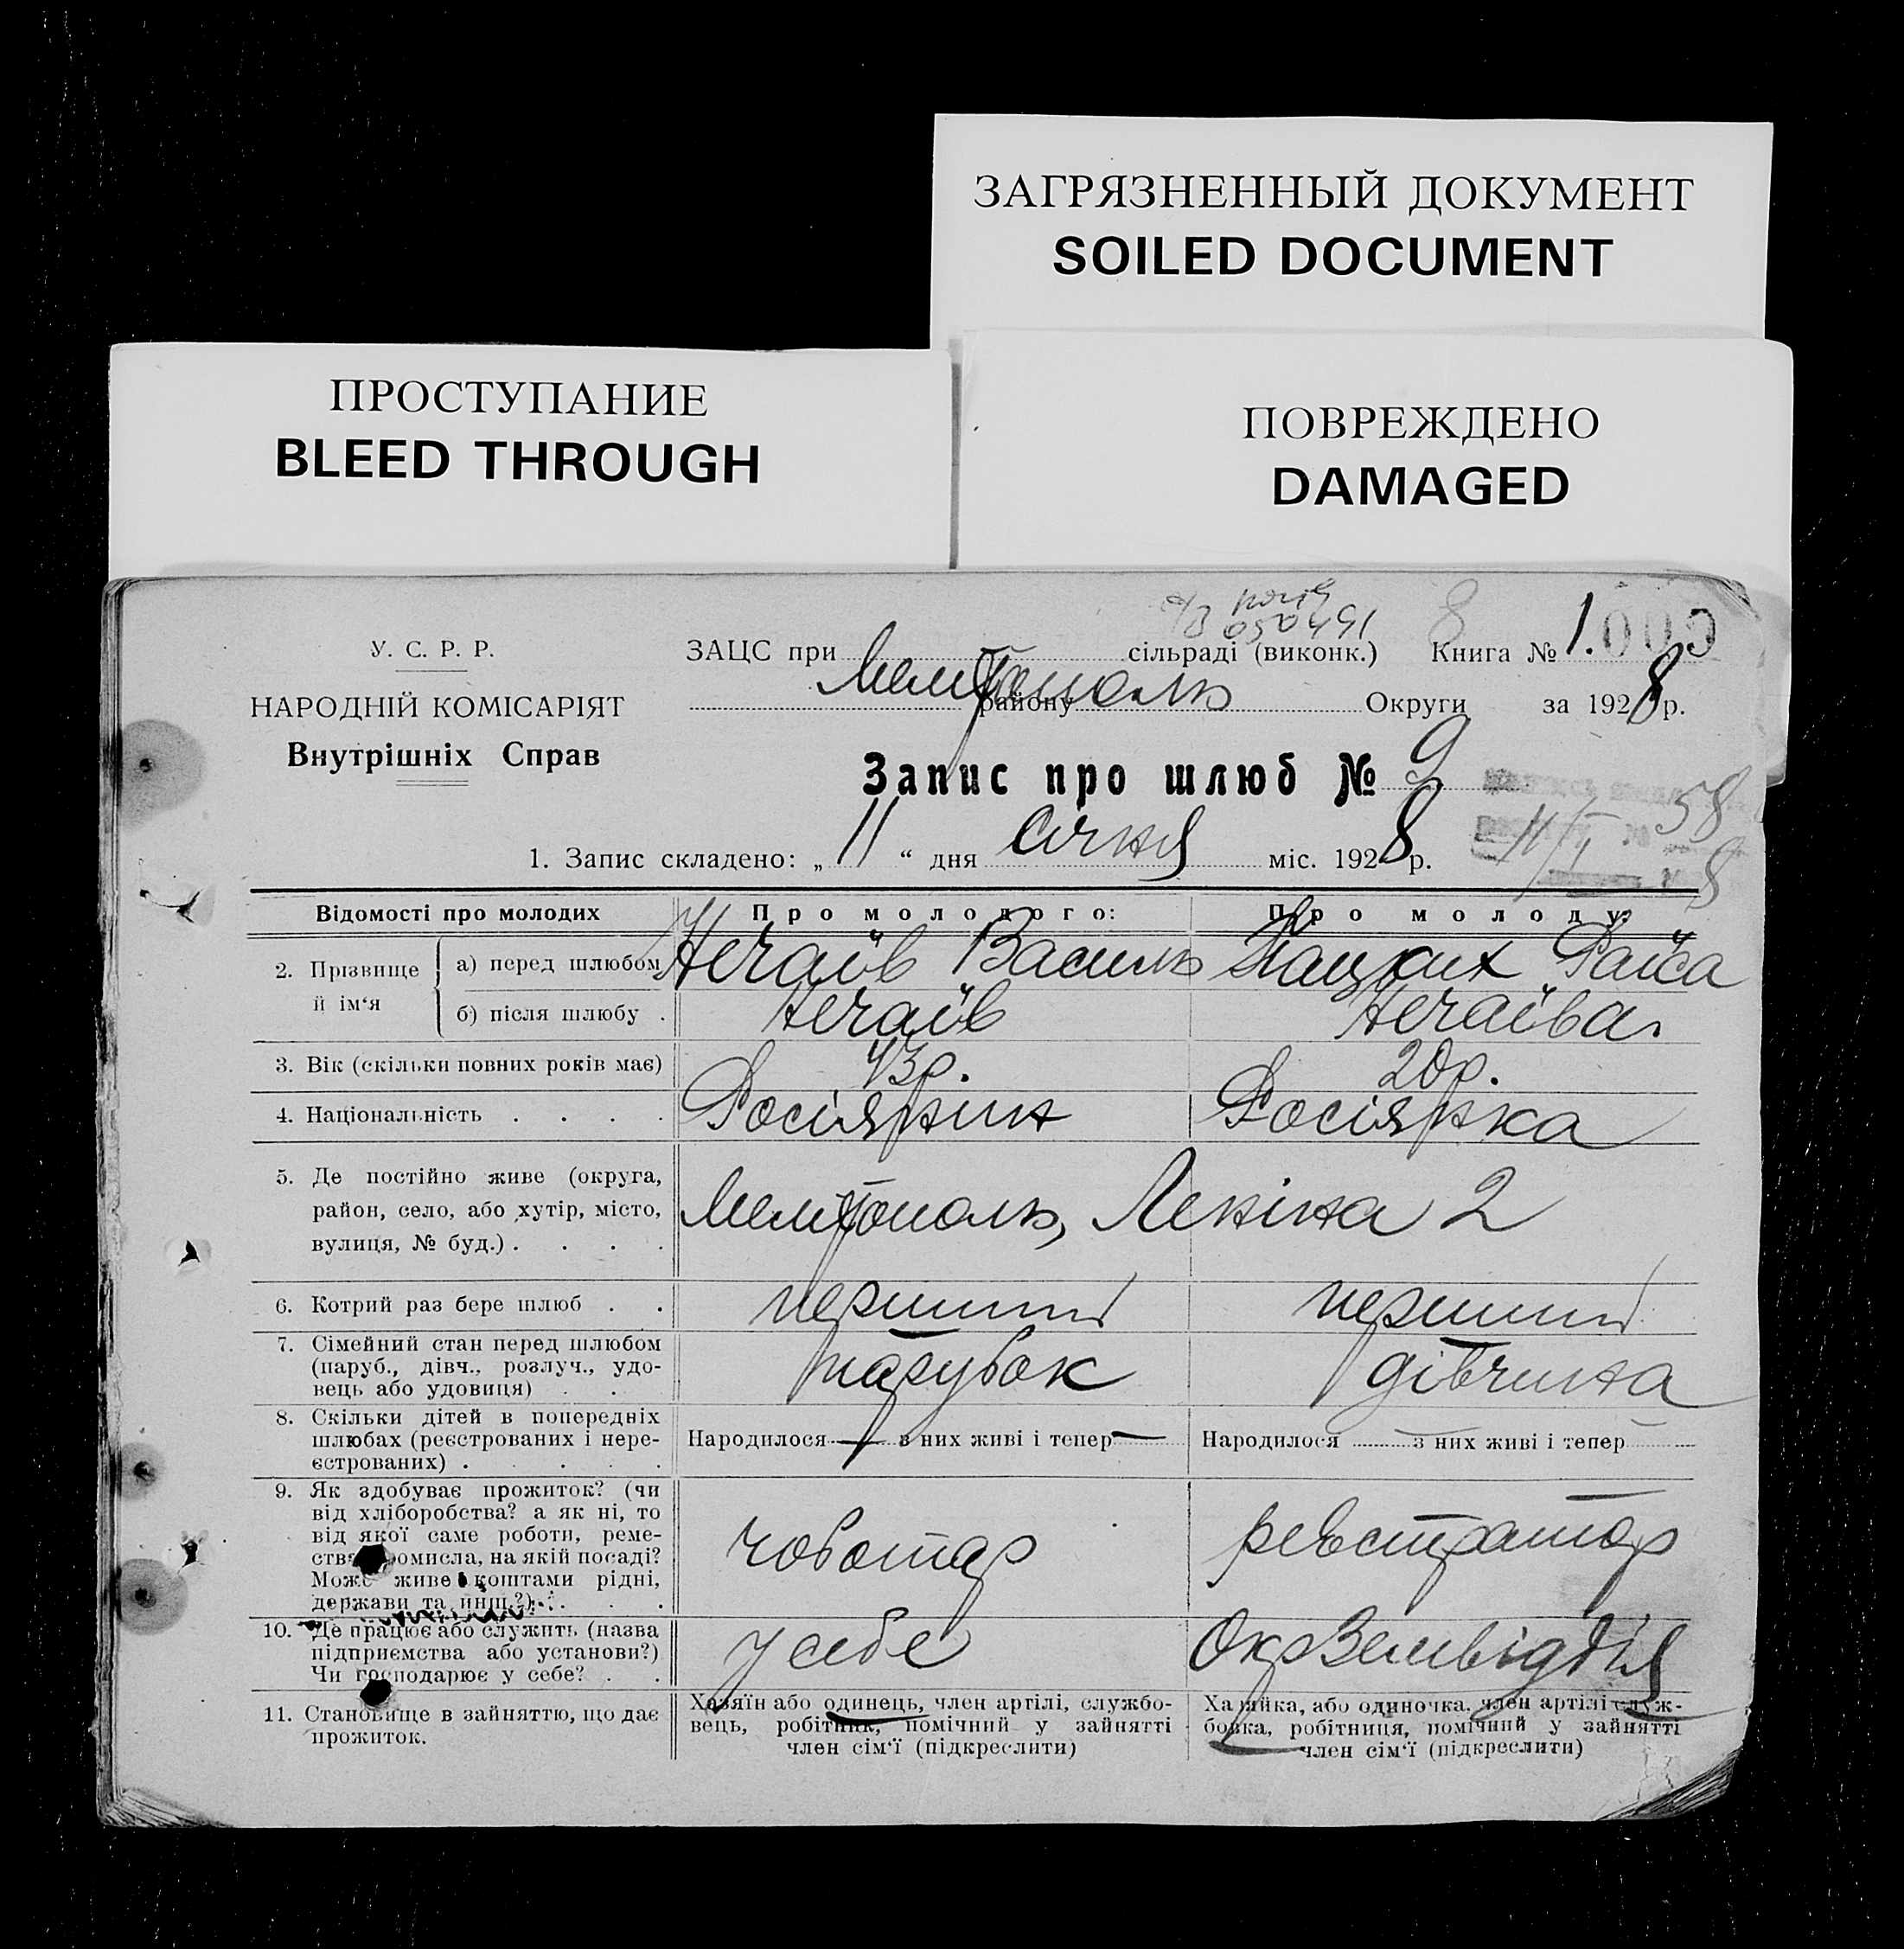 ЗАГРЯЗНЕННЫЙ ДОКУМЕНТ
SOILED DOCUMENT
ПРОСТУПАНИЕ
BLEED THROUGH
ПОВРЕЖДЕНО
DAMAGED
У. С. Р. Р.
НАРОДНІЙ КОМІСАРІЯТ
Внутрішніх Справ
050491
ЗАЦС при сільраді (виконк.) Книга № 1.
Мелітополь району Округи за 1928 р.
Запис про шлюб № 9
58
1. Запис складено: „ 11 “ дня січня міс. 1928 р.
11/I 8
Відомості про молодих Про молодого: Про молоду:
2. Прізвище й ім‘я
а) перед шлюбом Нечаїв Василь Раїса
б) після шлюбу . Нечаїв Нечаїва.
3. Вік (скільки повних років має) 43р. 20р.
4. Національність . . . . Росіянин Росіянка
5. Де постійно живе (округа,
район, село, або хутір, місто,
вулиця, № буд.) . . . . Мелітополь, Леніна 2
6. Котрий раз бере шлюб . . перший перший
7. Сімейний стан перед шлюбом
(паруб., дівч., розлуч., удо-
вець або удовиця) . . парубок дівчина
8. Скільки дітей в попередніх
шлюбах (реєстрованих і нере-
єстрованих) . . . . .
Народилося — з них живі і тепер —
Народилося з них живі і тепер —
9. Як здобуває прожиток? (чи
від хліборобства? а як ні, то
від якої саме роботи, реме-
ства, промисла, на якій посаді?
Може живе коштами рідні,
держави та инш.?) . . . . чоботар реєстратор
10. Де працює або служить (назва
підприємства або установи?)
Чи господарює у себе? . . у себе ОкрЗемвідділ
11. Становище в зайняттю, що дає
прожиток.
Хазяїн або одинець, член артілі, службо-
вець, робітник, помічний у зайнятті
член сім‘ї (підкреслити)
Хазяйка, або одиночка, член артілі служ-
бовка, робітниця, помічний у зайнятті
член сім‘ї (підкреслити)